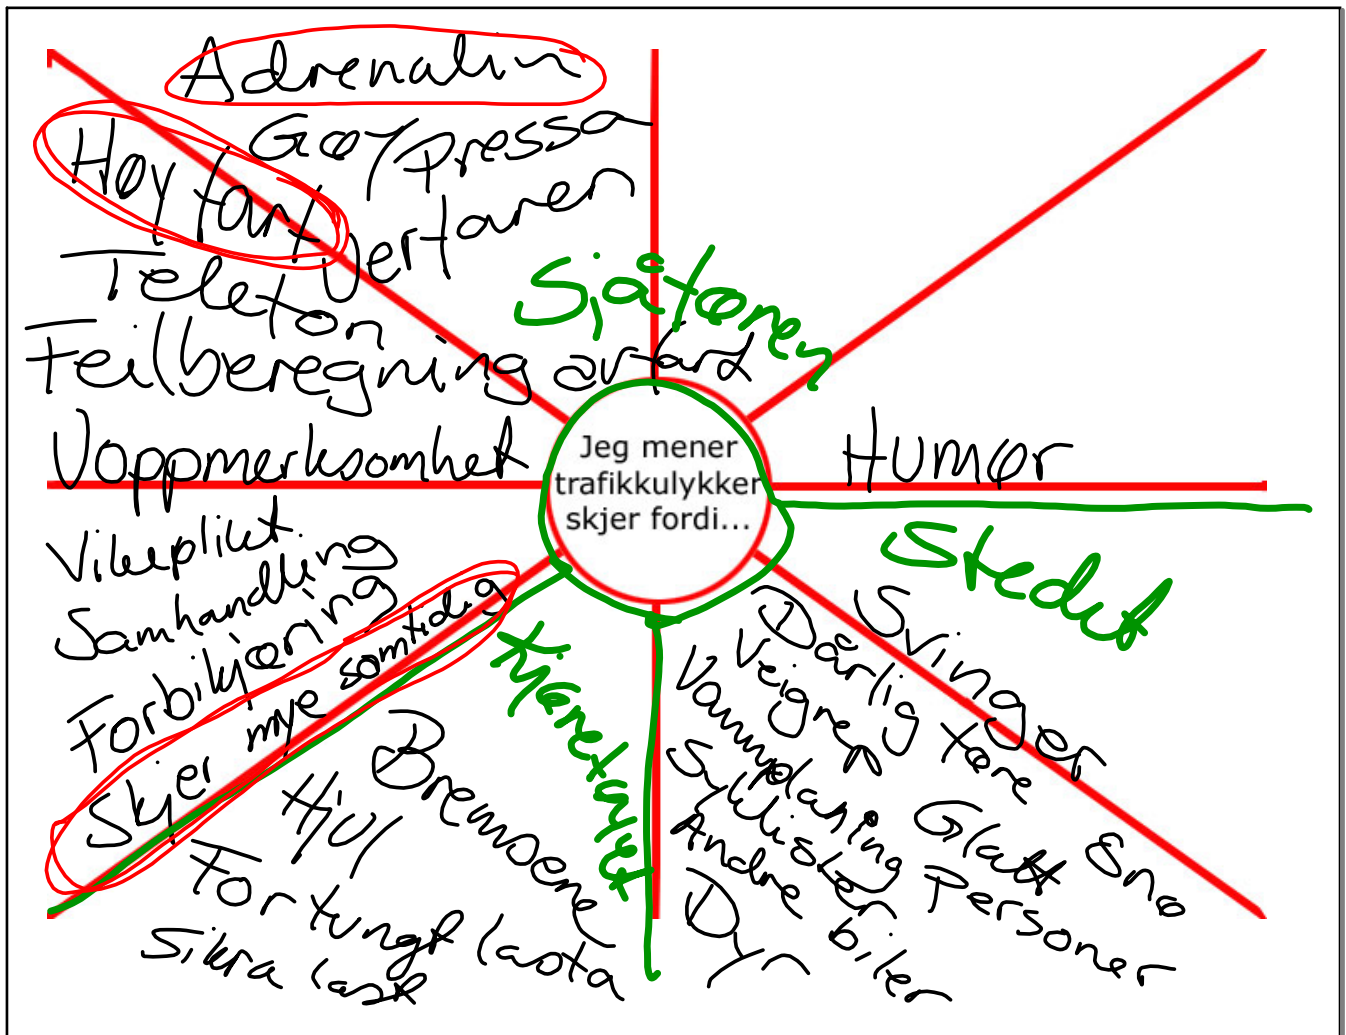 Adrenalin
Gøy/pressa
Høy fart
Verfaren
Telefon
Sjåføren
Feilberegning av fart
Uoppmerksomhet
Jeg mener
trafikkulykker
skjer fordi...
Humør
Vikeplikt
Samhandling
Forbikjøring
Skjer mye somtidig
Stedet
Kjøretøyet
Bremsene
Hjul
For tungt lasta
Sikra last
Svinger
Dårlig føre
Veigrep
Vannplaning
Glatt
Snø
Syklister
Personer
Andre biler
Dyr